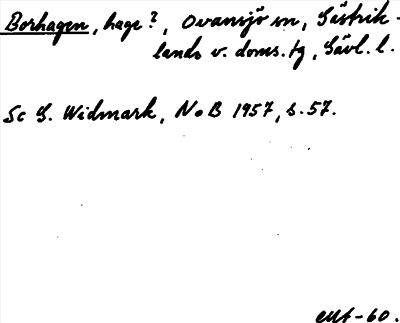 Borhagen, hage?, Ovansjö sn, Gästrik-
lands v. doms. tg, Gävl. l.
Se G. Widmark, NoB 1957, s. 57.
-60.